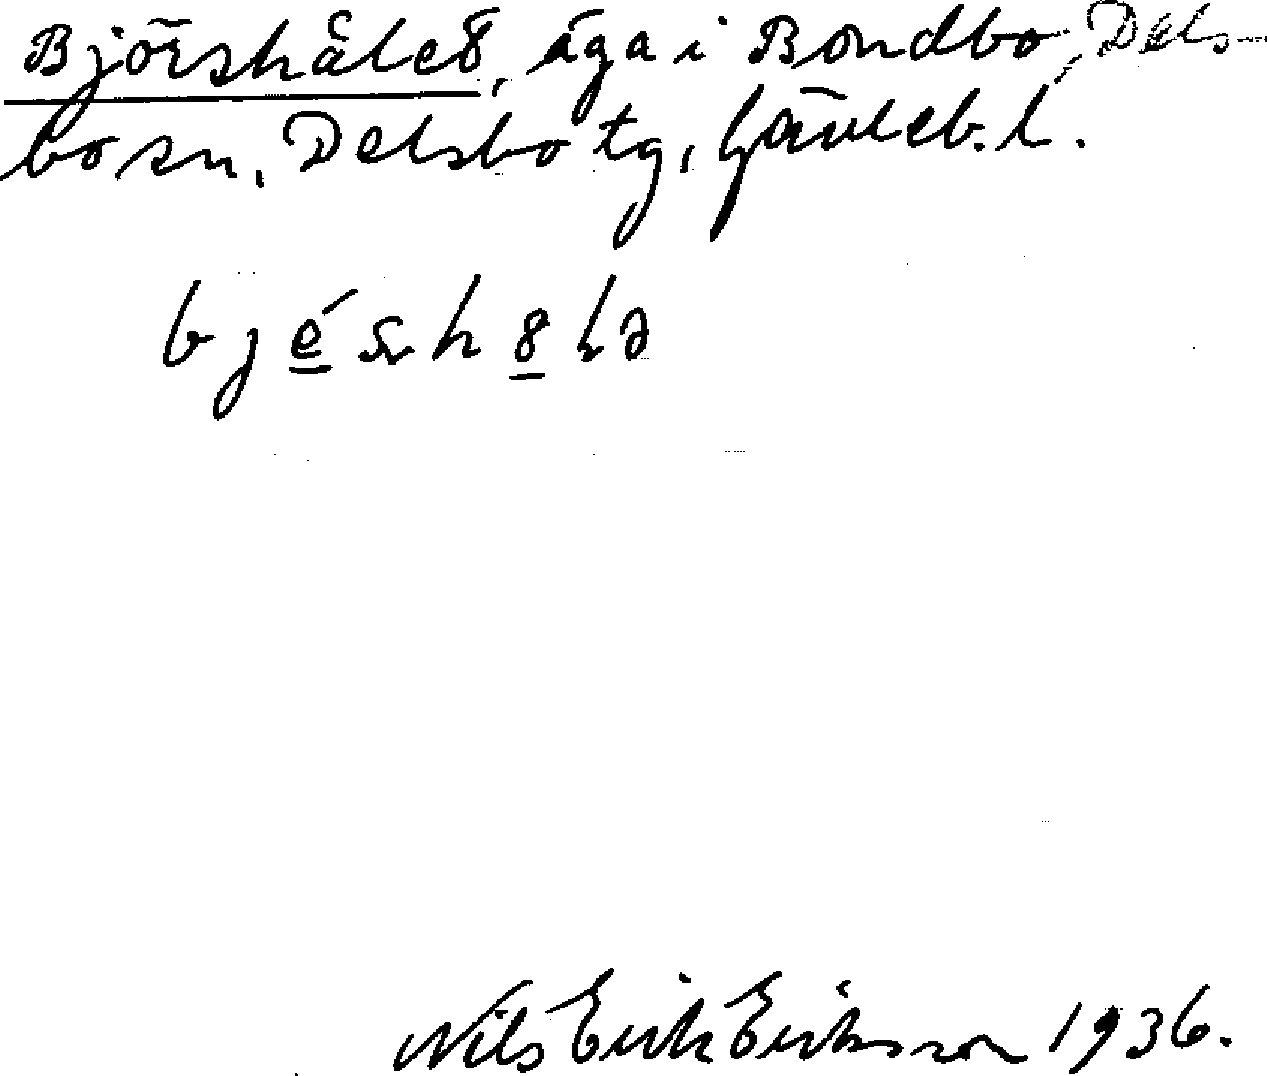 Björshåleð, äga i Bondbo, Dels-
bo sn, Delsbo tg, Gävleb. l.
Nils Erik Eriksson 1936.